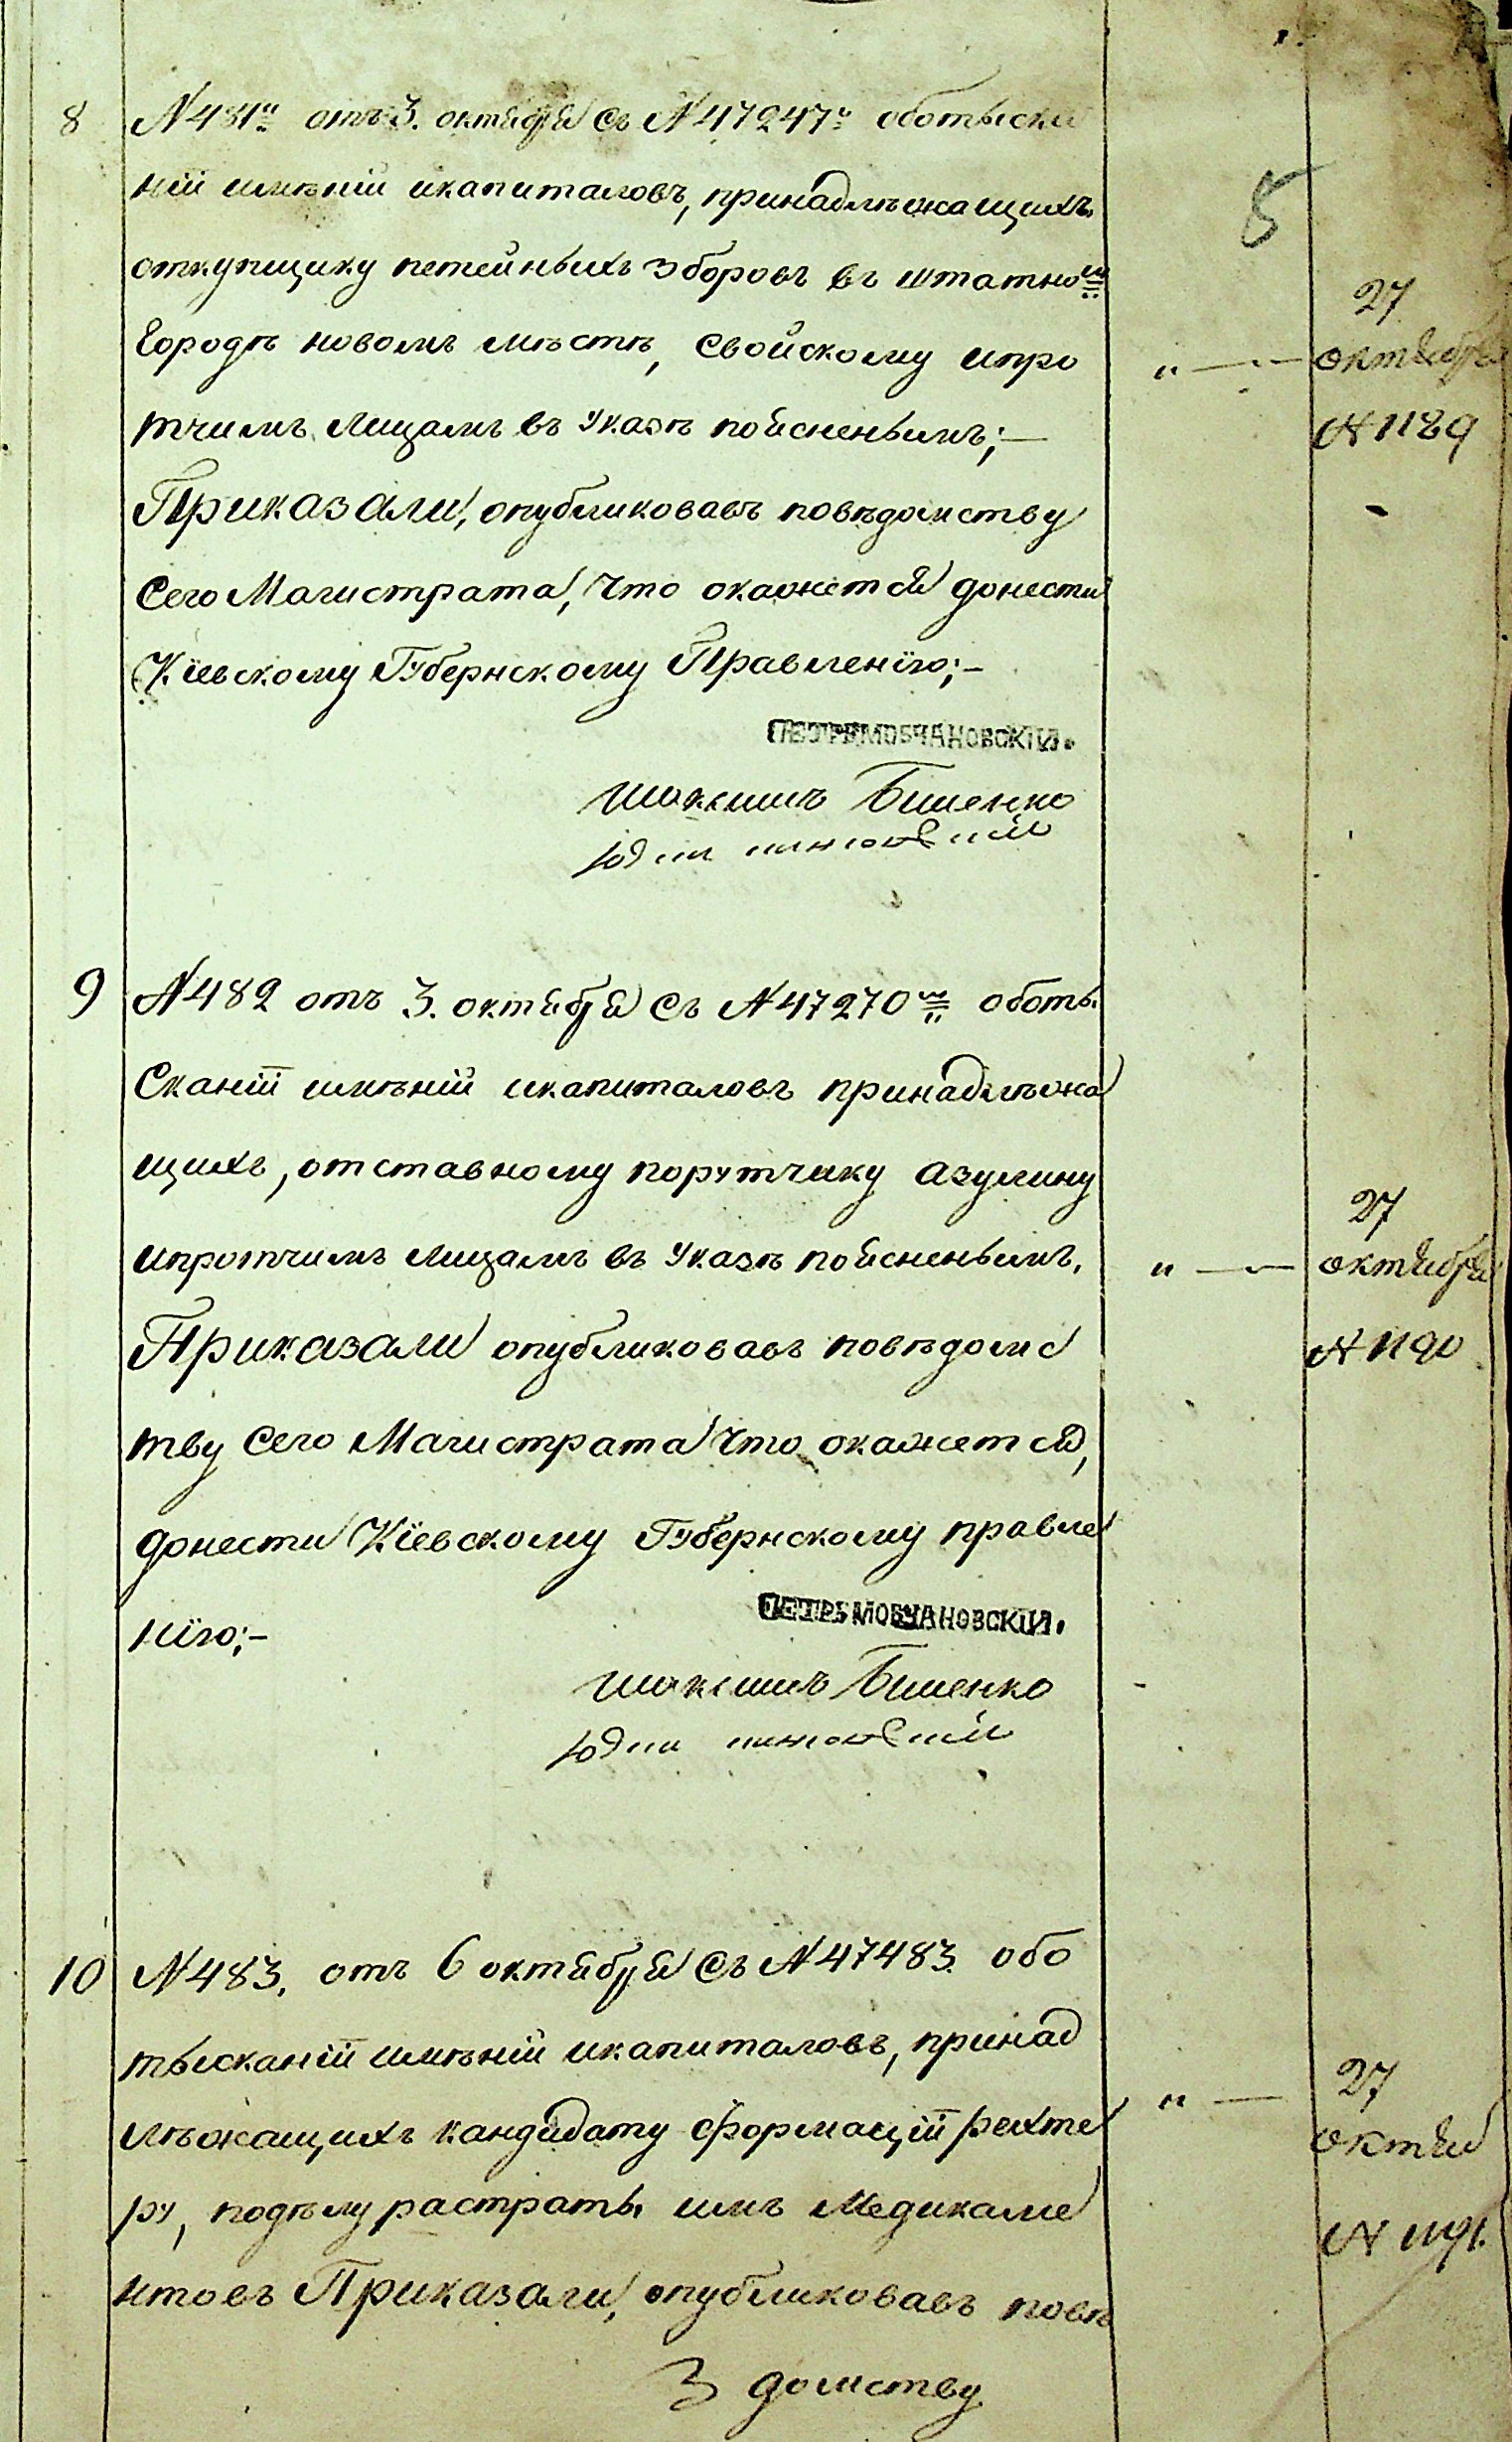 5
8 №481й отъ 3. октября съ №47247м оботыска
ніи имѣніи икапиталовъ, принадлѣжащихъ
откупщику петейныхъ зборовъ въ штатном
городѣ новомъ мѣстѣ, свойскому ипро
тчимъ лицамъ въ указѣ пояснены̀мъ;—
Приказали, опубликовавъ повѣдомству
Сего Магистрата, что окажется донести
Кіевскому Губернскому Правленію;—
" — 27
октября
№ 1189
ПЕТРЪ МОВЧАНОВСКІЙ.
Максимъ Бименко
9 №482 отъ 3. октября съ №47270м оботы
сканіи имѣніи икапиталовъ принадлѣжа
щихъ, отставному порутчику азулину
ипротчимъ лицамъ въ указѣ пояснеными.
Приказали опубликовавъ повѣдомс
тву Сего Магистрата что окажется,
донести Кіевскому Губернскому правле
нію;—
" — 27
октября
№ 1190
ПЕТРЪ МОВЧАНОВСКІЙ.
Максимъ Бименко
10 №483. отъ 6 октября съ №47483 обо
тысканіи имѣніи икапиталовъ, принад
лѣжащихъ кандидату формаціи рехте
ру, подѣлу растраты имъ Медикаме
нтовъ Приказали, опубликовавъ повѣ
" — 27
октяб
№ 1191.
3 домству